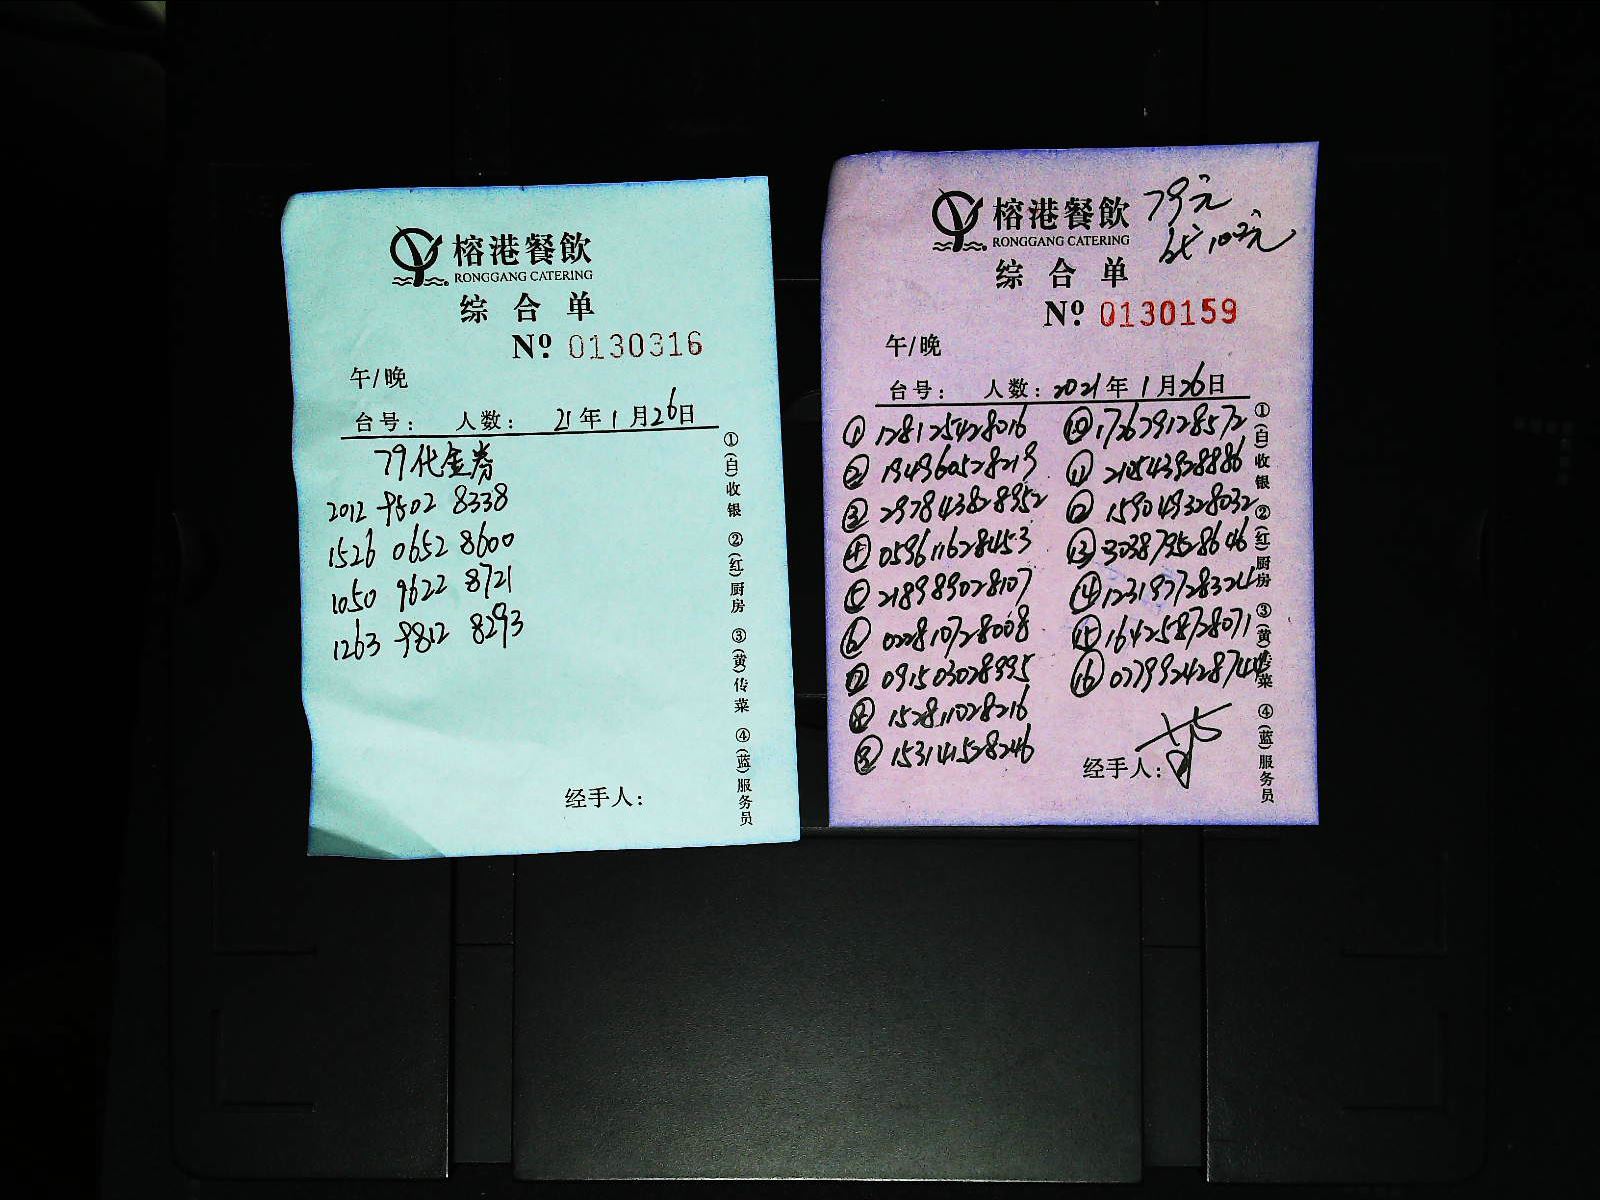 榕港餐飲
RONGGANG CATERING
综合单
Nº 0130316
午/晚
台号: 人数: 21年1月26日
79代金券
2012 9502 8338
1526 0652 8600
1050 9622 8721
1263 9812 8293
经手人:
①(白)收银 ②(红)厨房 ③(黄)传菜 ④(蓝)服务员
榕港餐飲 79元
RONGGANG CATERING 100元
综合单
Nº 0130159
午/晚
台号: 人数: 2021年1月26日
① 128125428016
② 194960528219
③ 297843828952
④ 059611628453
⑤ 218989028107
⑥ 022810728008
⑦ 091503028995
⑧ 152811028216
⑨ 153141528246
⑩ 176279128572
⑪ 210543928886
⑫ 159049328032
⑬ 303879528646
⑭ 123197728324
⑮ 164258728071
⑯ 077992428744
经手人:
①(白)收银 ②(红)厨房 ③(黄)传菜 ④(蓝)服务员